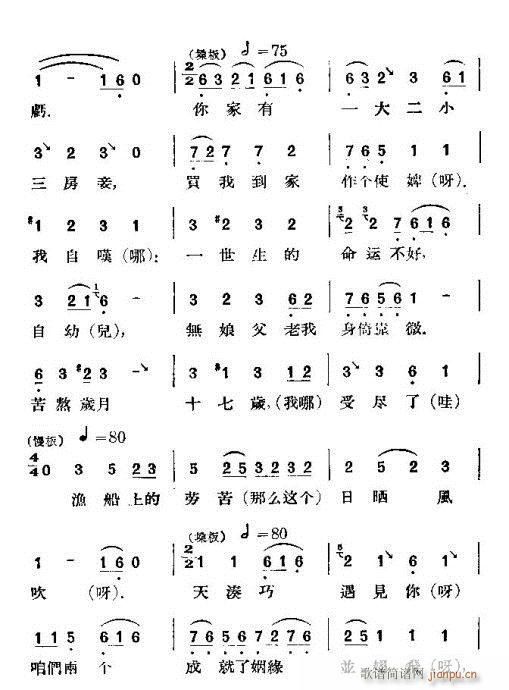 (垛板) 𝅗𝅥=75
1 - 1 6 0 | 2/2 6 3 2 1 6 1 6 | 6 3 2 3 6 1
虧. 你家有 一大二小
3 2 3 2 | 7 2 7 7 2 | 7 6 5 1 1
三房妾, 買我到家 作个使婢(呀).
#1 2 3 1 | 3 #2 3 2 | 2 2 7 6 1 6
我自嘆(哪): 一世生的 命运不好,
3 2 1 6 | 3 2 3 6 2 | 7 6 5 6 1 1
自幼(兒), 無娘父老我 身倚靠微.
6 3 #2 3 | #3 #1 3 1 2 | 3 3 1 1
苦熬歲月 十七歲,(我哪) 受尽了(哇)
(慢板) 𝅗𝅥=80
4/4 0 3 5 2 3 | 5 2 5 3 2 3 2 | 5 2 2
漁船上的 劳苦(那么这个) 日晒風
(垛板) 𝅗𝅥=80
1 - 1 6 0 | 2/2 1 1 6 1 6 | 2 1 6 1
吹(呀). 天湊巧 遇見你(呀)
1 1 5 6 1 6 | 7 6 5 6 7 6 5 | 1 2 1 1
咱們兩个 成就了姻緣 並
歌谱简谱网
jianpu.cn